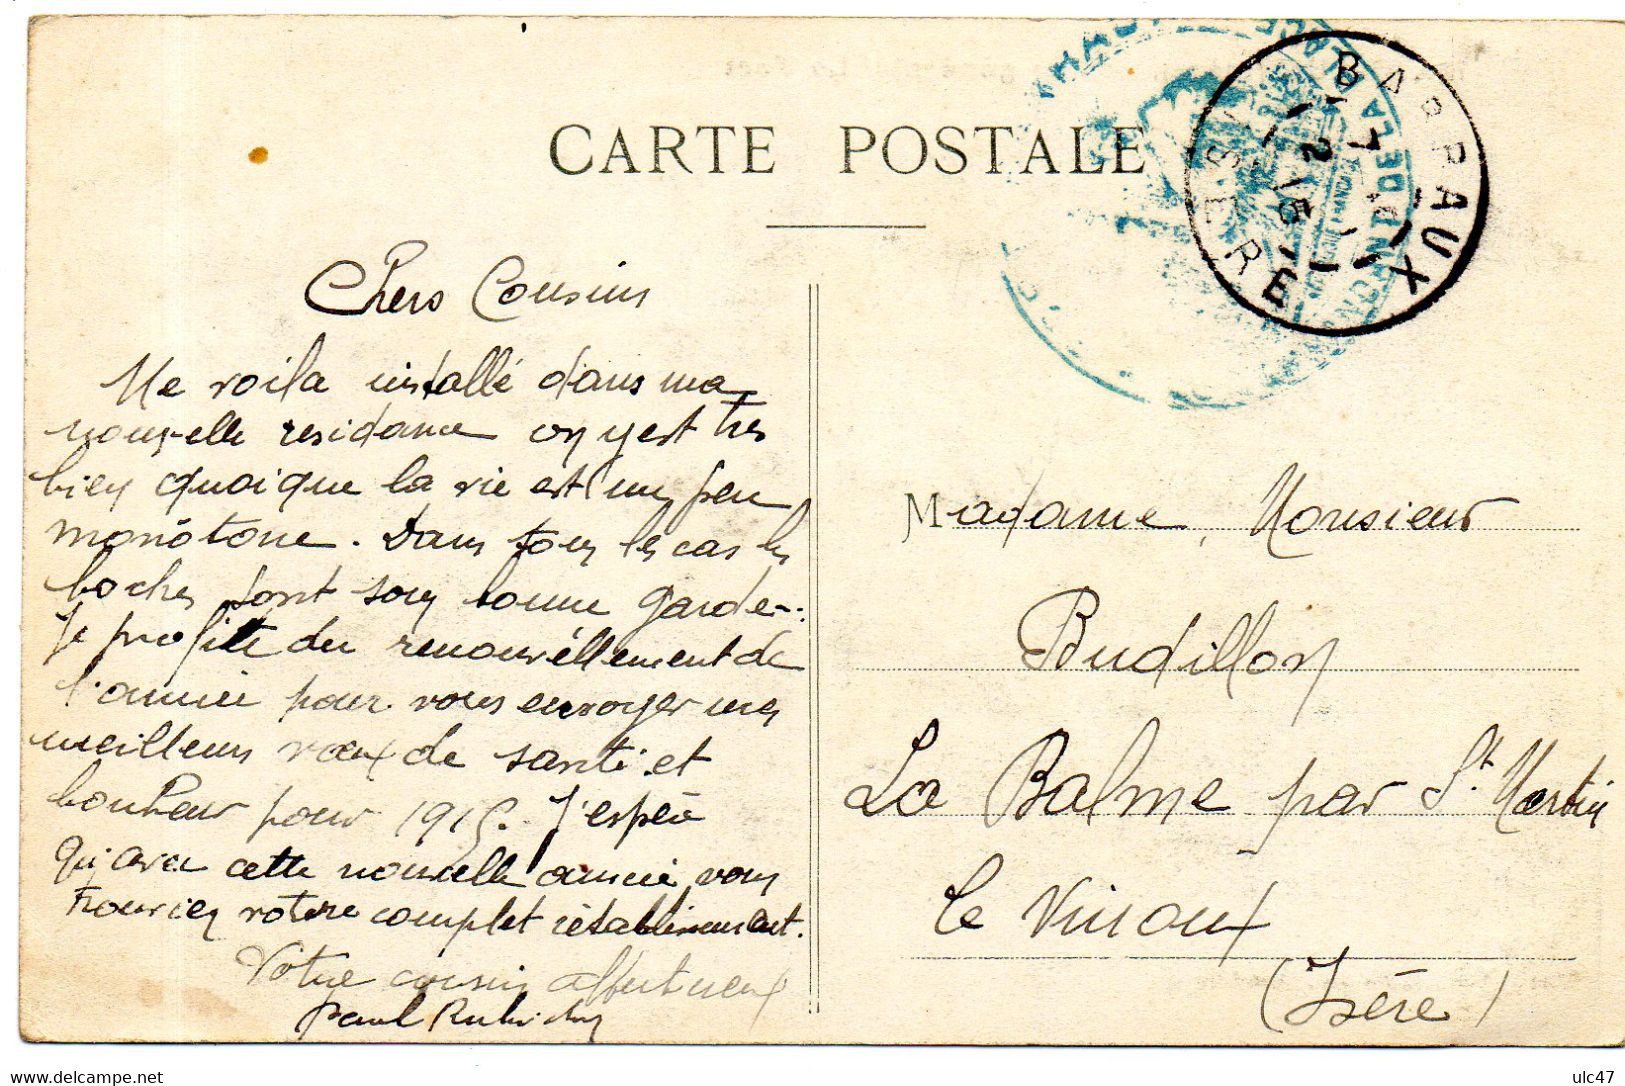 CARTE POSTALE
BARRAUX
7
2 15
ISERE
PLACE
DE LA
Chers Cousins
Me voila installé dans ma
nouvelle residance on y est tres
bien quoique la vie est un peu
monotone. Dans tous les cas les
boches sont sous bonne garde.
Je profite du renouvéllement de
l'année pour vous envoyer mes
meilleurs vœux de santé et
bonheur pour 1915. J'espère
qu'avec cette nouvelle année vous
trouviez votre complet rétablissement.
Votre cousin affectueux
Paul
Madame, Monsieur
Budillon
La Balme par St Martin
le Vinoux
(Isère)
www.delcampe.net
ulc47